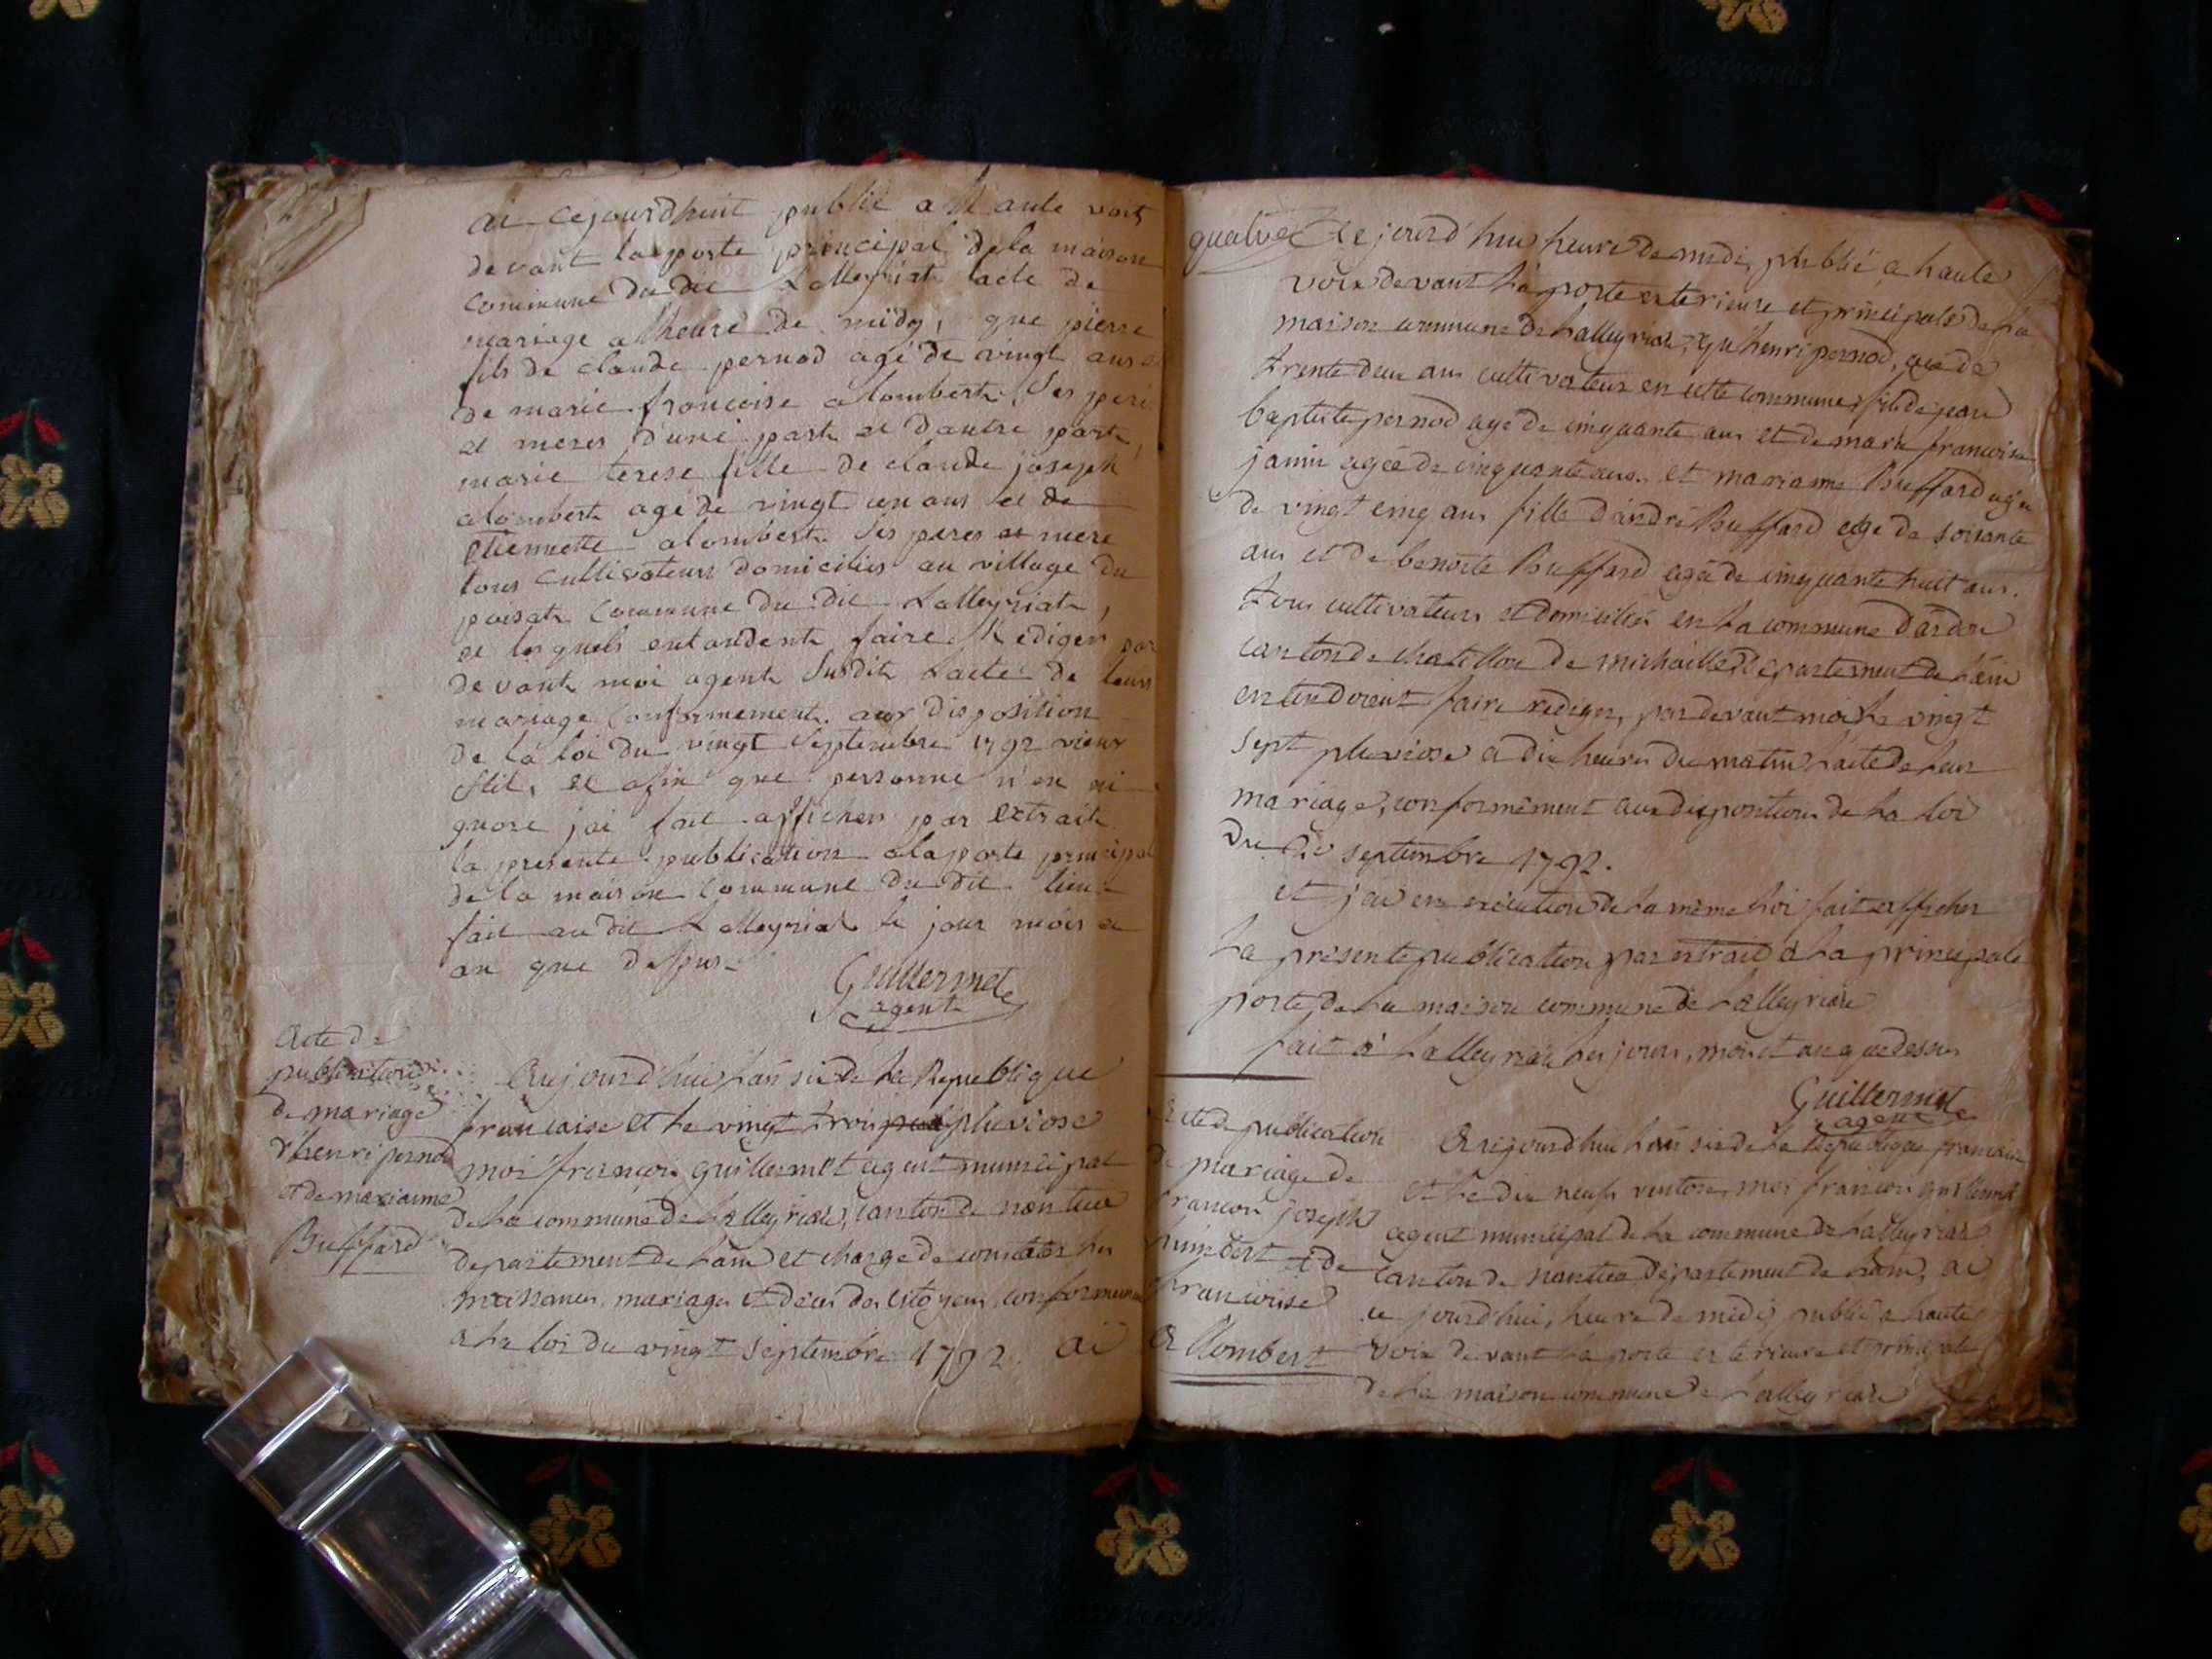 ai cejourdhuit publié a Haute voit
devant la porte principal dela maison
commune du dit Lalleyriat lacte de
mariage a lheure de midy, que pierre
fils de claude pernod agé de vingt ans et
de marie francoise alombert Ses peres
et meres d'une part et dautre part,
marie terese fille de claude joseph
alombert agé de vingt un ans et de
etiennette alombert Ses peres et mere
tous Cultivateurs domicilies au village du
poisat Commune du dit Lalleyriat,
et lesquels entandent faire Rediger par
devant moi agent Susdit Lacte de leurs
mariage Conformement aux disposition
de la loi du vingt Septembre 1792 vieux
stil, et afin que personne n'en ni
gnore jai fait afficher par extrait
la presente publication ala porte principal
de la maison Commune du dit lieu
fait au dit Lalleyriat le jour mois et
an que dessus
Guillermet
agent
Acte de
publication
de mariage
d'henri pernod
et de marianne
Buffard
Aujourd'hui L'an six de La Republique
francaise et Le vingt trois pluviose
moi francois guillermet agent municipal
de La commune de Lalleyriat, canton de nantua
departement de Lain et chargé de constater les
naissances, mariages et décés des citoyens, conformement
a La loi du vingt septembre 1792. ai
quatre
Ce jourd'hui heure de midi, publié a haute
voix devant La porte exterieure et principale de La
maison commune de Lalleyriat, qu'henri pernod, agé de
trente deux ans cultivateur en cette commune, fils de jean
baptiste pernod agé de cinquante ans et de marie francoise
janin agée de cinquante ans. et marianne Buffard agée
de vingt cinq ans fille d'andré Buffard agé de soixante
ans et de benoite Buffard agée de cinquante huit ans.
tous cultivateurs et domiciliés en La commune d'ardon
canton de chatillon de michaille, departement de L'ain
entendoient faire rediger, pardevant moi Le vingt
sept pluviose a dix heures du matin L'acte de Leur
mariage, conformément aux dispositions de La Loi
du septembre 1792.
et j'ai en exécution de La même Loi fait afficher
La présente publication par extrait a La principale
porte de La maison commune de Lalleyriat
fait a Lalleyriat Les jours, mois et an que dessus
Guillermet
agent
Acte de publication
de mariage de
francois joseph
humbert et de
francoise
Allombert
Aujourd'hui L'an six de La Republique francaise
et Le dix neuf ventose, moi francois guillermet
agent municipal de La commune de Lalleyriat
canton de nantua departement de Lain, ai
ce jourd'hui, heure de midi publié a haute
voix devant La porte exterieure et principale
de La maison commune de Lalleyriat